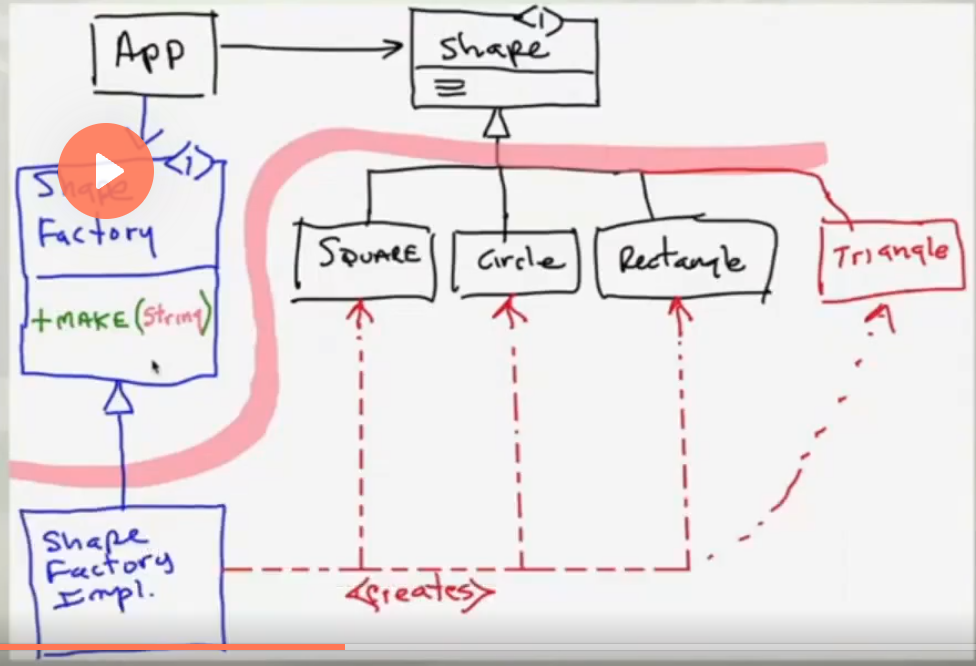 App
<I>
Shape
<I>
Shape
Factory
+MAKE(String)
SQUARE
Circle
Rectangle
Triangle
Shape
Factory
Impl.
<creates>